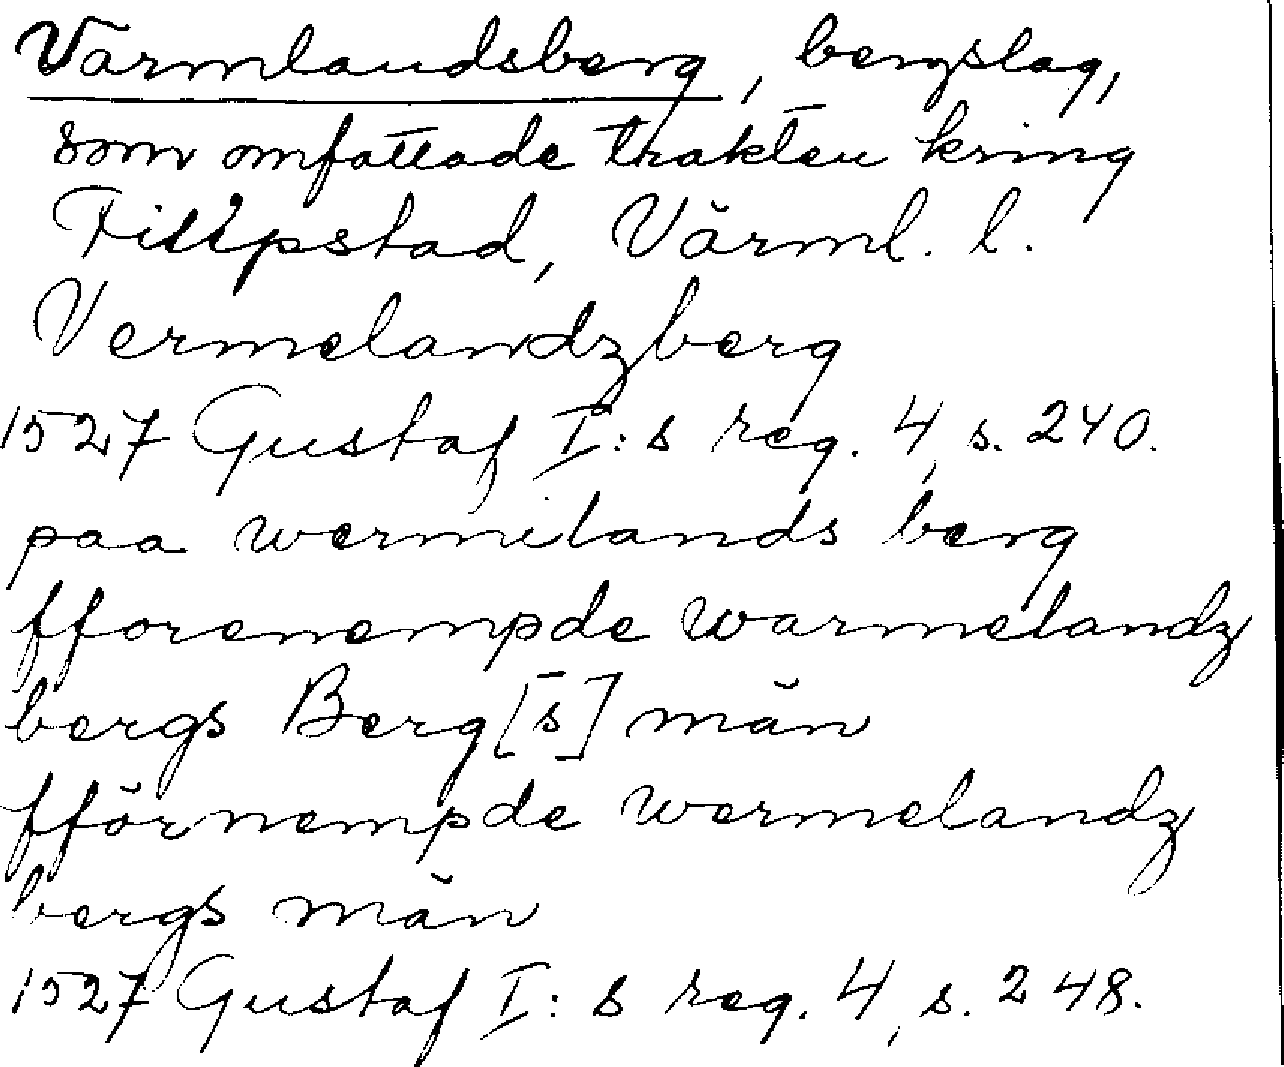 Värmlandsberg, bergslag,
som omfattade trakten kring
Filipstad, Värml. l.
Vermelandzberg
1527 Gustaf I:s reg. 4, s. 240.
paa wermelands berg
fforenempde warmelandz
bergs Berg[s] män
fförnempde wermelandz
bergs män
1527 Gustaf I:s reg. 4, s. 248.